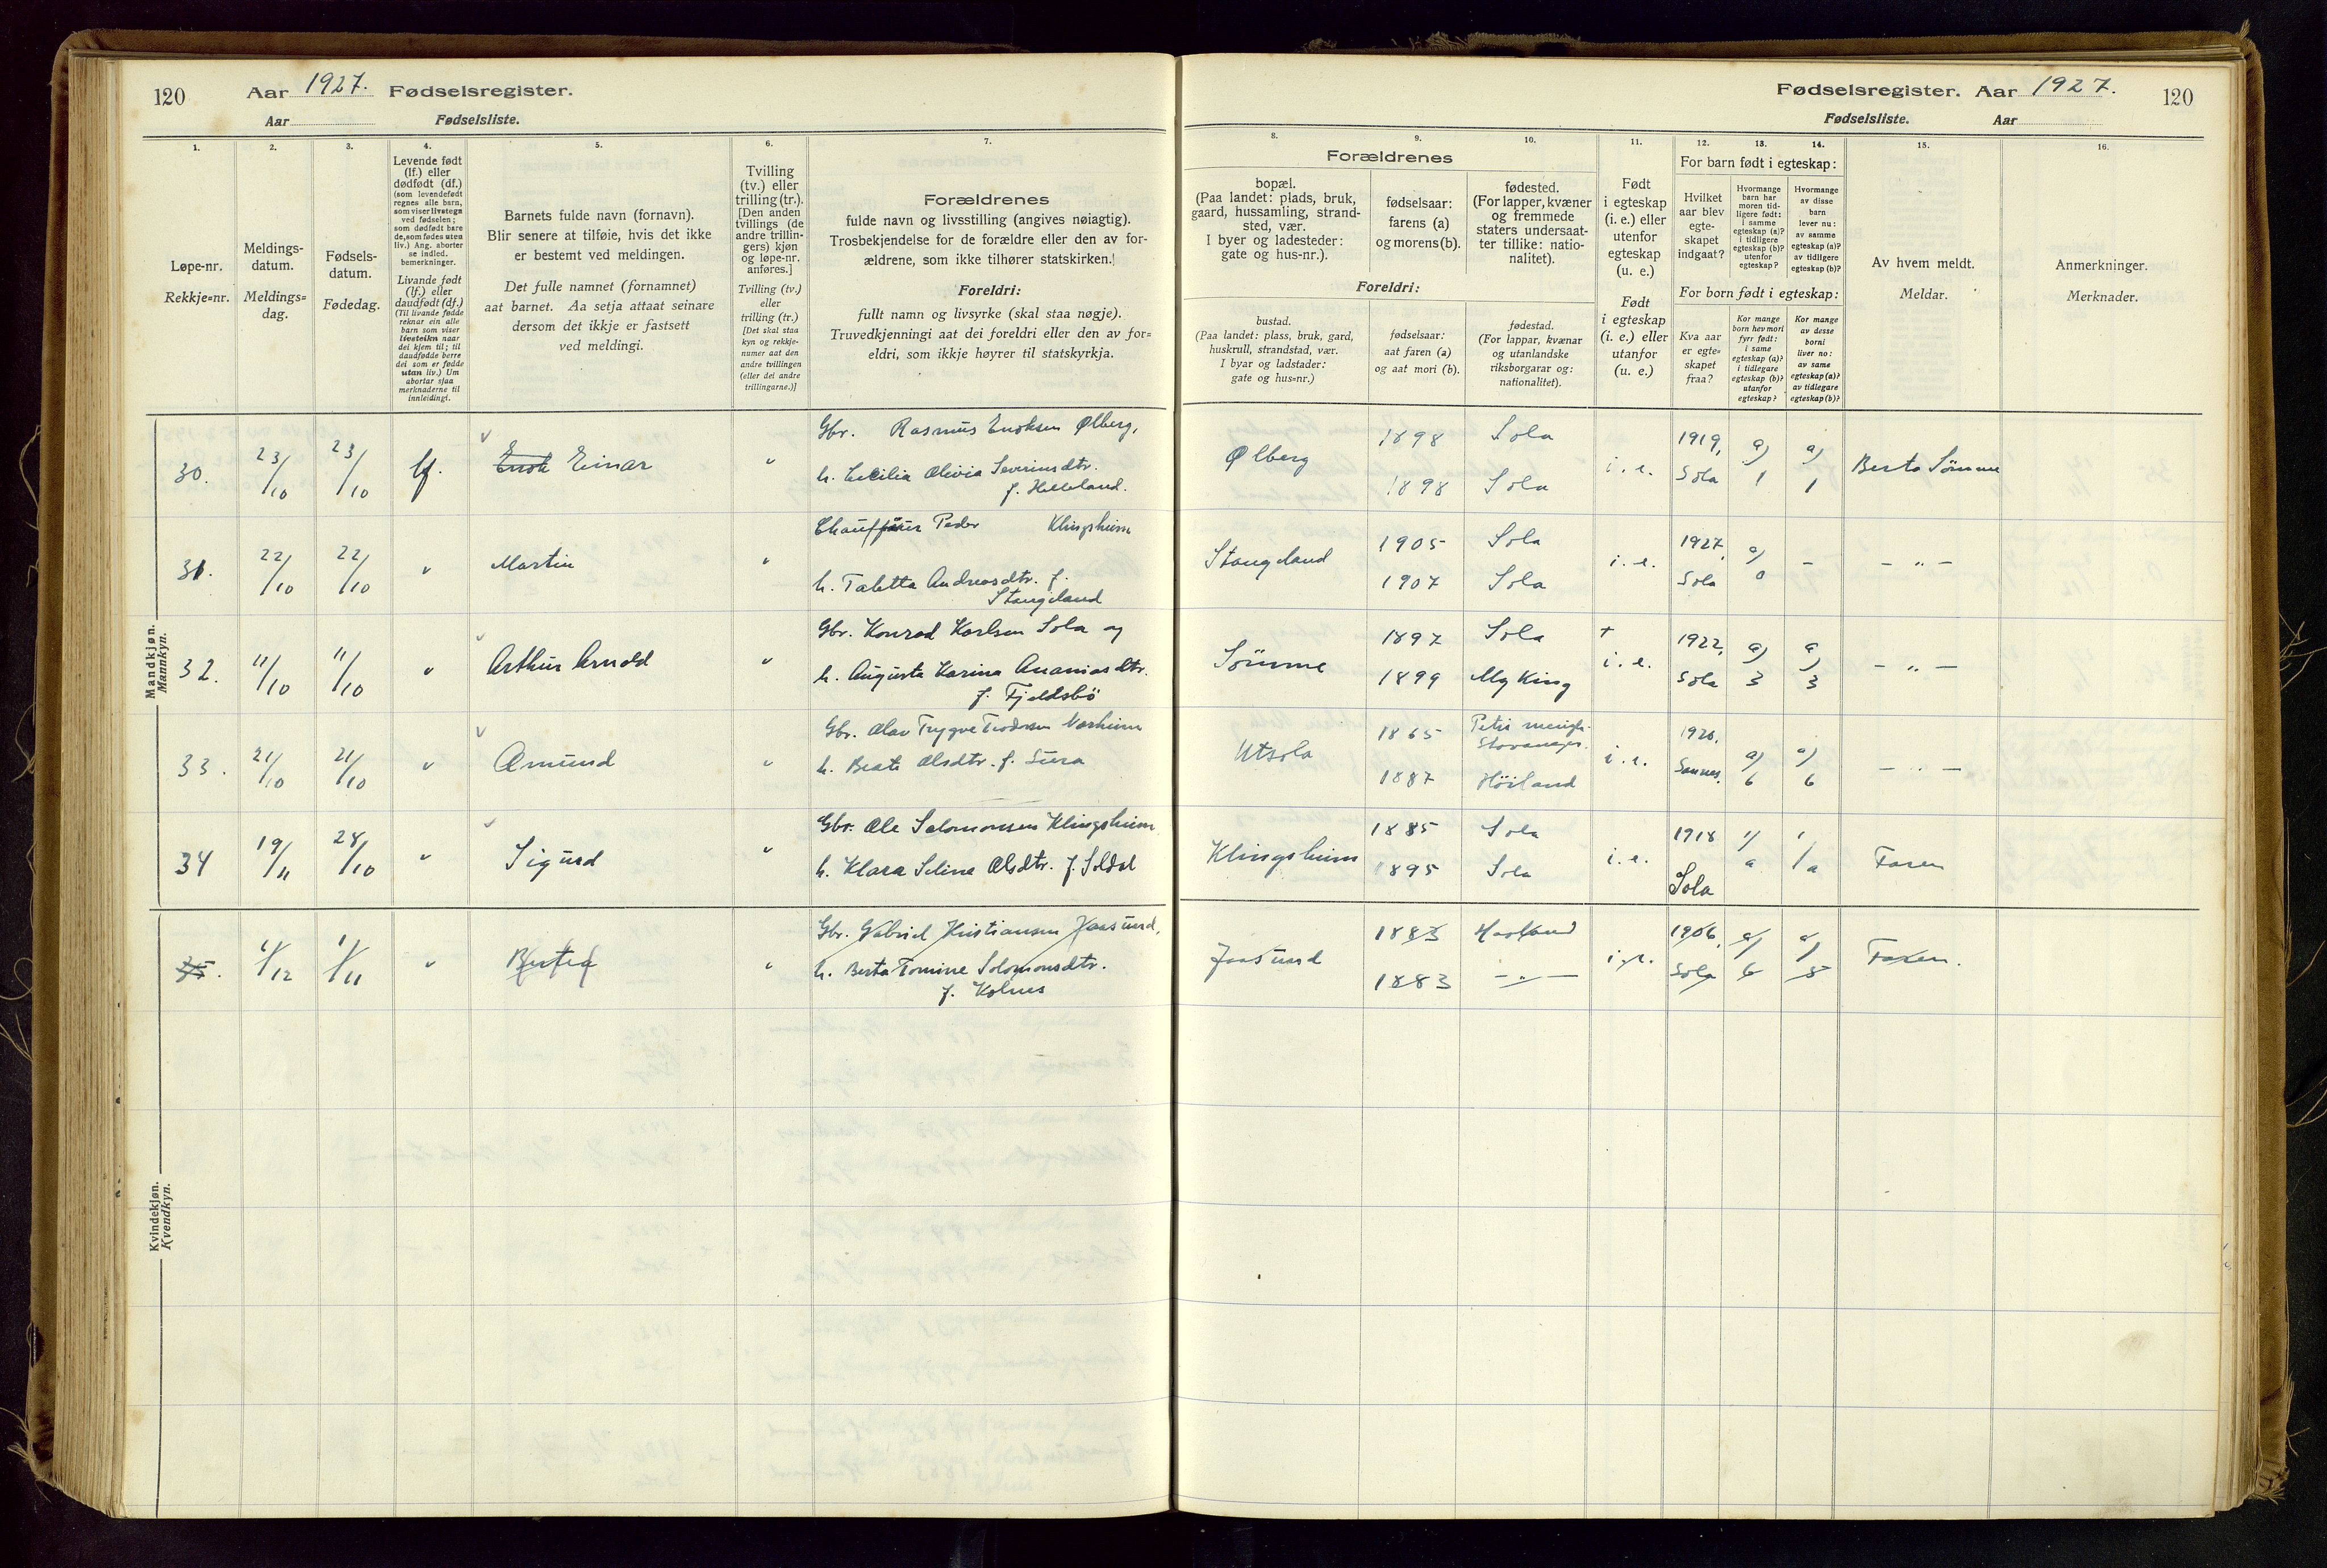 120 Aar 1927. Fødselsregister.
Aar Fødselsliste.
Fødselsregister. Aar 1927. 120
Fødselsliste. Aar
1. 2. 3. 4. 5. 6. 7.
Løpe-nr.
Rekkje=nr.
Meldings-
datum.
Meldings=
dag.
Fødsels-
datum.
Fødedag.
Levende født
(lf.) eller
dødfødt (df.)
(som levendefødt
regnes alle barn,
som viser livstegn
ved fødselen;
som dødfødt bare
de, som fødes uten
liv.) Ang. aborter
se indled.
bemerkninger.
Livande født
(lf.) eller
daudfødt (df.)
(Til livande fødde
reknar ein alle
barn som viser
livsteikn naar
dei kjem til; til
daudfødde berre
dei som er fødde
utan liv.) Um
abortar sjaa
merknaderne til
innleidingi.
Barnets fulde navn (fornavn).
Blir senere at tilføie, hvis det ikke
er bestemt ved meldingen.
Det fulle namnet (fornamnet)
aat barnet. Aa setja attaat seinare
dersom det ikkje er fastsett
ved meldingi.
Tvilling
(tv.) eller
trilling (tr.).
[Den anden
tvillings (de
andre trillin-
gers) kjøn
og løpe-nr.
anføres.]
Tvilling (tv.)
eller
trilling (tr.)
[Det skal staa
kyn og rekkje-
numer aat den
andre tvillingen
(eller dei andre
trillingarne.)]
Forældrenes
fulde navn og livsstilling (angives nøiagtig).
Trosbekjendelse for de forældre eller den av for-
ældrene, som ikke tilhører statskirken.
Foreldri:
fullt namn og livsyrke (skal staa nøgje).
Truvedkjenningi aat dei foreldri eller den av for=
eldri, som ikkje høyrer til statskyrkja.
8. 9. 10. 11. 12. 13. 14. 15. 16.
Forældrenes
bopæl.
(Paa landet: plads, bruk,
gaard, hussamling, strand-
sted, vær.
I byer og ladesteder:
gate og hus-nr.).
fødselsaar:
farens (a)
og morens (b).
fødested.
(For lapper, kvæner
og fremmede
staters undersaat-
ter tillike: natio-
nalitet).
Foreldri:
bustad.
(Paa landet: plass, bruk, gard,
huskrull, strandstad, vær.
I byar og ladstader:
gate og hus=nr.)
fødselsaar:
aat faren (a)
og aat mori (b).
fødestad.
(For lappar, kvænar
og utanlandske
riksborgarar og:
nationalitet).
Født
i egteskap
(i. e.) eller
utenfor
egteskap
(u. e.)
Født
i egteskap
(i. e.) eller
utanfor
(u. e.)
For barn født i egteskap:
Hvilket
aar blev
egte-
skapet
indgaat?
Hvormange
barn har
moren tid-
ligere født:
i samme
egteskap (a)?
i tidligere
egteskap (b)?
utenfor
egteskap?
Hvormange
av disse
barn
lever nu:
av samme
egteskap (a)?
av tidligere
egteskap (b)?
For born født i egteskap:
Kva aar
er egte=
skapet
fraa?
Kor mange
born hev mori
fyrr født:
i same
egteskap (a)?
i tidlegare
egteskap (b)?
utanfor
egteskap?
Kor mange
av desse
borni
liver no:
av same
egteskap (a)?
av tidlegare
egteskap (b)?
Av hvem meldt.
Meldar.
Anmerkninger.
Merknader.
Mandkjøn.
Mannkyn.
30. 23/10 23/10 lf. Enok Einar " Gbr. Rasmus Enoksen Ølberg, Ølberg 1898 Sola i. e. 1919, a) a) Berta Sömme
h. Cecilia Olivia Severinsdtr. 1898 Sola Sola 1 1
f. Helleland.
31. 22/10 22/10 " Martin " Chauffeur Peder Klingsheim Stangeland 1905 Sola i. e. 1927, a) - - " -
h. Tabetta Andreasdtr. f. 1907 Sola Sola 0
Stangeland
32. 11/10 11/10 " Arthur Arnold " Gbr. Konrad Karlsen Sola og Sömme 1897 Sola + i. e. 1922, a) a) - " -
h. Augusta Karina Ananiasdtr. 1899 Sola 3 3
f. Fjeldsbö
33. 21/10 21/10 " Amund " Gbr. Olav Trygve Teodorsen Utsola 1865 Petri menigh. Stavanger. i. e. 1926. a) a) - " -
h. Beate Olsdtr. f. Sura 1887 Höiland 6 6
34 19/11 28/10 " Sigurd " Gbr. Ole Salomonsen Klingsheim Klingsheim 1885 Sola i. e. 1918 1/a 1/a Faren
h. Klara Selina Olsdtr. f. Soldal 1895 Sola Sola
35. 1/12 1/11 " Bertea " Gbr. Gabriel Kristiansen Jaasund, Jaasund 1883 Haaland i. e. 1906, a) a) Faren.
h. Berta Tomine Solomonsdtr. 1883 - " - Sola 6 5
f. Kolnes
Kvindekjøn.
Kvendkyn.